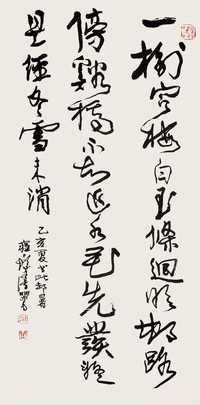 一樹寒梅白玉條迴臨邨路
傍谿橋不知近水花先發疑
是經冬雪未消
乙亥夏書此却暑